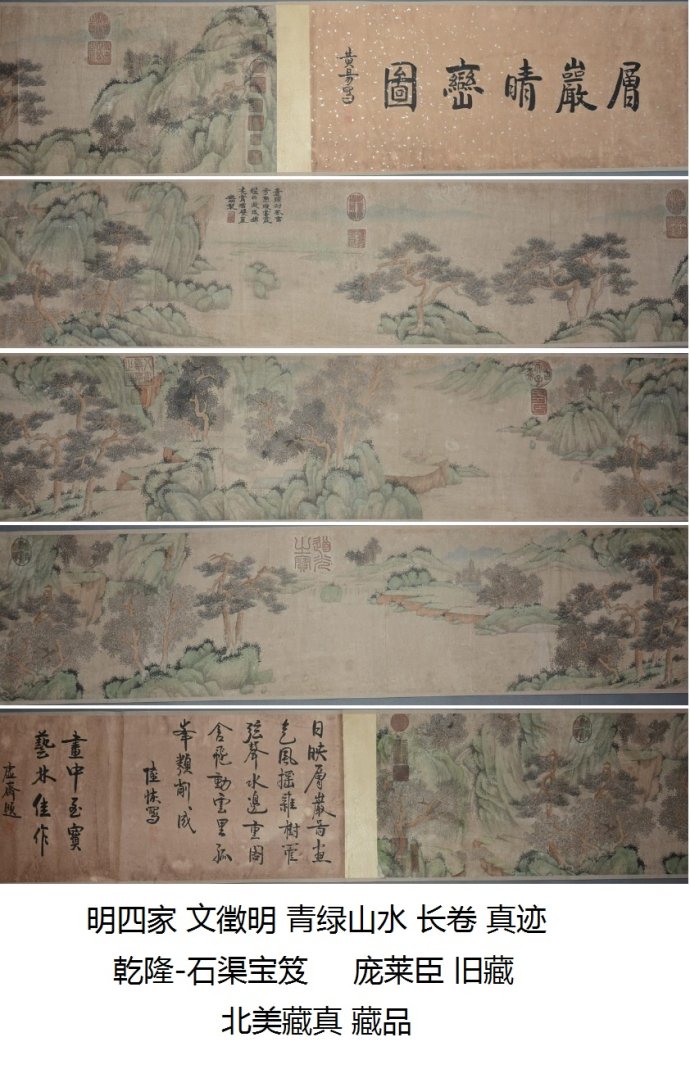 層巖晴巒圖
黃易寫
日映層巖啚畫
色風搖雜樹管
弦聲水邊重閣
含飛動雲里孤
峯類削成
陸恢寫
畫中至寶
藝林佳作
虛齋題
明四家 文徵明 青绿山水 长卷 真迹
乾隆-石渠宝笈 庞莱臣 旧藏
北美藏真 藏品